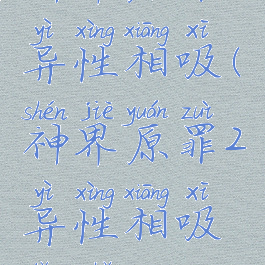 yì xìng xiāng xī
异性相吸(
shén jiè yuán zuì
神界原罪2
yì xìng xiāng xī
异性相吸